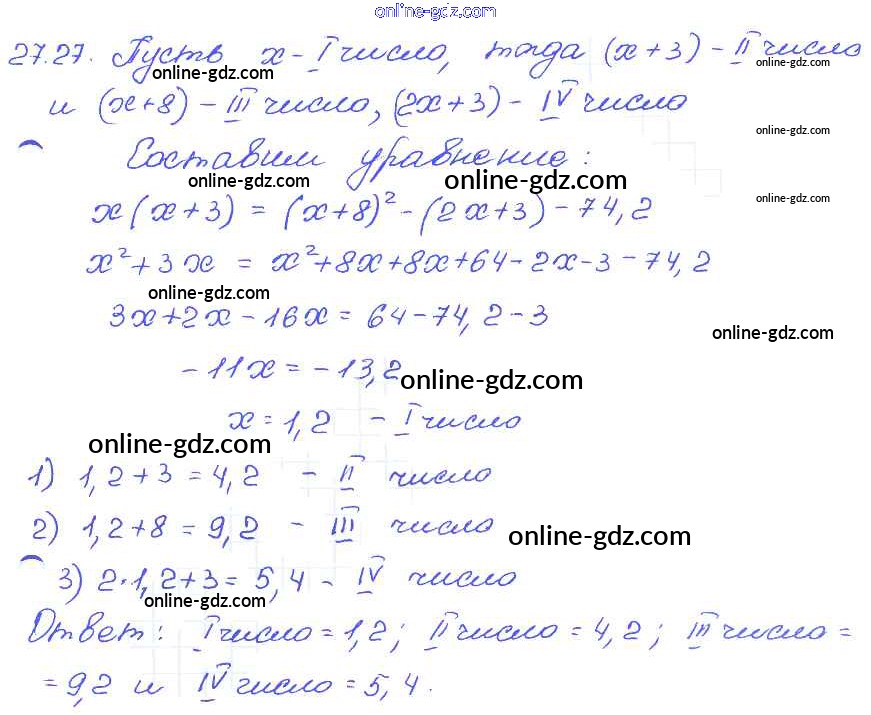 online-gdz.com
27.27. Пусть x - I число, тогда (x+3) - II число
online-gdz.com online-gdz.com
и (x+8) - III число, (2x+3) - IV число
online-gdz.com
Составим уравнение:
online-gdz.com online-gdz.com
online-gdz.com
x(x+3) = (x+8)² - (2x+3) - 74,2
x² + 3x = x² + 8x + 8x + 64 - 2x - 3 - 74,2
online-gdz.com
3x + 2x - 16x = 64 - 74,2 - 3
online-gdz.com
-11x = -13,2
online-gdz.com
x = 1,2 - I число
online-gdz.com
1) 1,2 + 3 = 4,2 - II число
2) 1,2 + 8 = 9,2 - III число
online-gdz.com
3) 2·1,2 + 3 = 5,4 - IV число
online-gdz.com
Ответ: I число = 1,2; II число = 4,2; III число =
= 9,2 и IV число = 5,4.